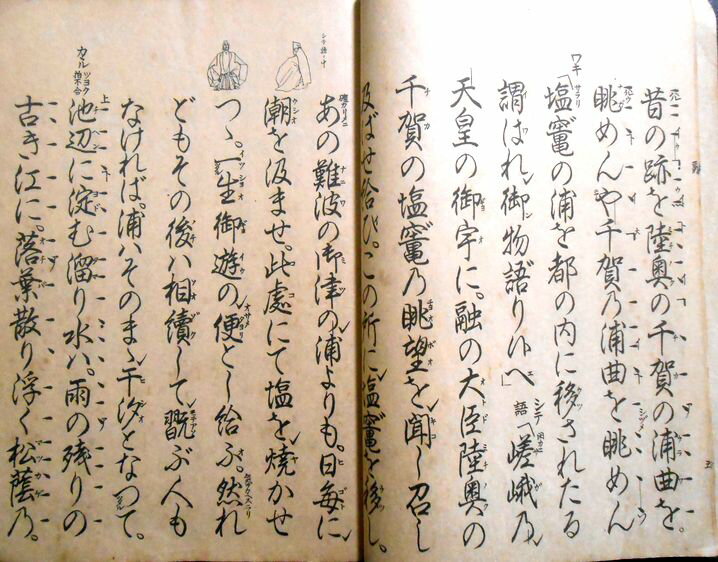 昔の跡を陸奥の千賀の浦曲を。
眺めんや千賀乃浦曲を眺めん
ワキ「塩竈の浦を都の内に移されたる
謂はれ御物語り候へ」シテ語「嵯峨乃
天皇の御宇に。融の大臣陸奥の
千賀の塩竈乃眺望を聞し召し
及ばせ給ひ。この所に塩竈を移し。
あの難波の御津の浦よりも。日毎に
潮を汲ませ。此處にて塩を焼かせ
つゝ。一生御遊の便とし給ふ。然れ
どもその後ハ相續して翫ぶ人も
なければ。浦ハそのまゝ干汐となつて。
池辺に淀む溜り水ハ。雨の残りの
古き江に。落葉散り浮く松蔭乃。